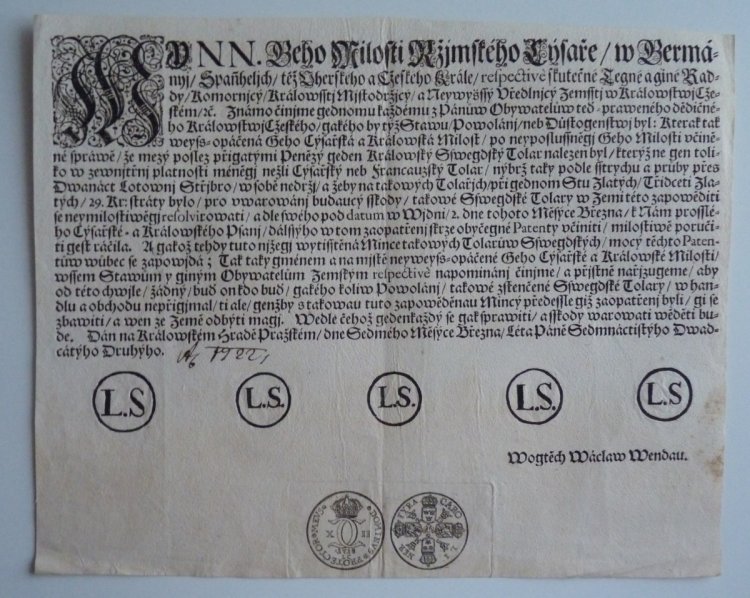 MY N N. Geho Milosti Ržjmského Cýsaře / w Germá-
nyj / Spañheljch / též Vherského a Cžeského Krále / respectivè skutečné Tegné a giné Rad-
dy / Komornjcy / Králowsstj Mjstodržjcy / a Neywyssý Vředlnjcý Zemsstj w Králowstwj Cže-
ském / ꝛč. Známo činjme gednomu každému z Pánůw Obywatelůw teď-praweného dědičné-
ho Králowstwj Cžeského / gakého by týž Stawu / Powolánj / neb Důstogenstwj byl: Kterak tak
weyss-opáčená Geho Cýsařská a Králowská Milost / po neyposlussněgj Geho Milosti včině-
né spráwě / že mezý poslez přigatými Penězý geden Králowský Sswegdský Tolar nalezen byl / kterýž ne gen toli-
ko w zewnjtřnj platnosti méněgj nežlj Cýsařský neb Francauzský Tolar / nýbrž taky podle sstrychu a pruby přes
Dwanáct Lotownj Střjbro / w sobě nedržj / a žeby na takowých Tolařjch / při gednom Stu Zlatých / Třidceti Zla-
tých / 29. Kr: stráty bylo / pro vwarowánj budaucý sskody / takowé Sswegdské Tolary w Zemi této zapowěditi
se neymilostiwěgi resolvirowati / a dle swého pod datum w Wjdni / 2. dne tohoto Měsýce Března / k Nám prossle-
ho Cýsařské- a Králowského Psanj / dálssýho w tom zaopatřenj skrze obyčegné Patenty včiniti / milostiwě poruči-
ti gest ráčila. A gakož tehdy tuto njžegi wytisstěná Mince takowých Tolarůw Sswegdských / mocý těchto Paten-
tůw wůbec se zapowjdá; Tak taky gménem a na mjstě neyweyss-opáčené Geho Cýsařské a Králowské Milosti /
wssem Stawům y giným Obywatelům Zemským respectivè napomjnánj činjme / a přjsně nařjzugeme / aby
od této chwjle / žádný / buď on kdo buď / gakého koliw Powolánj / takowé zskenčené Sswegdské Tolary / w han-
dlu a obchodu nepřigjmal / ti ale / genžby s takowau tuto zapowěděnau Mincý předessle giž zaopatřeni byli / gi se
zbawiti / a wen ze Země odbýti magj. Wedle čehož gedenkaždý se gak sprawiti / a sskody warowati wěděti bu-
de. Dán na Králowském Hradě Pražském / dne Sedmého Měsýce Března / Léta Páně Sedmnáctistýho Dwad-
cátýho Druhýho.
1722
L.S L.S. L.S. L.S. L.S
Wogtěch Wáclaw Wendau.
DOMINUS PROTECTOR MEUS
X II